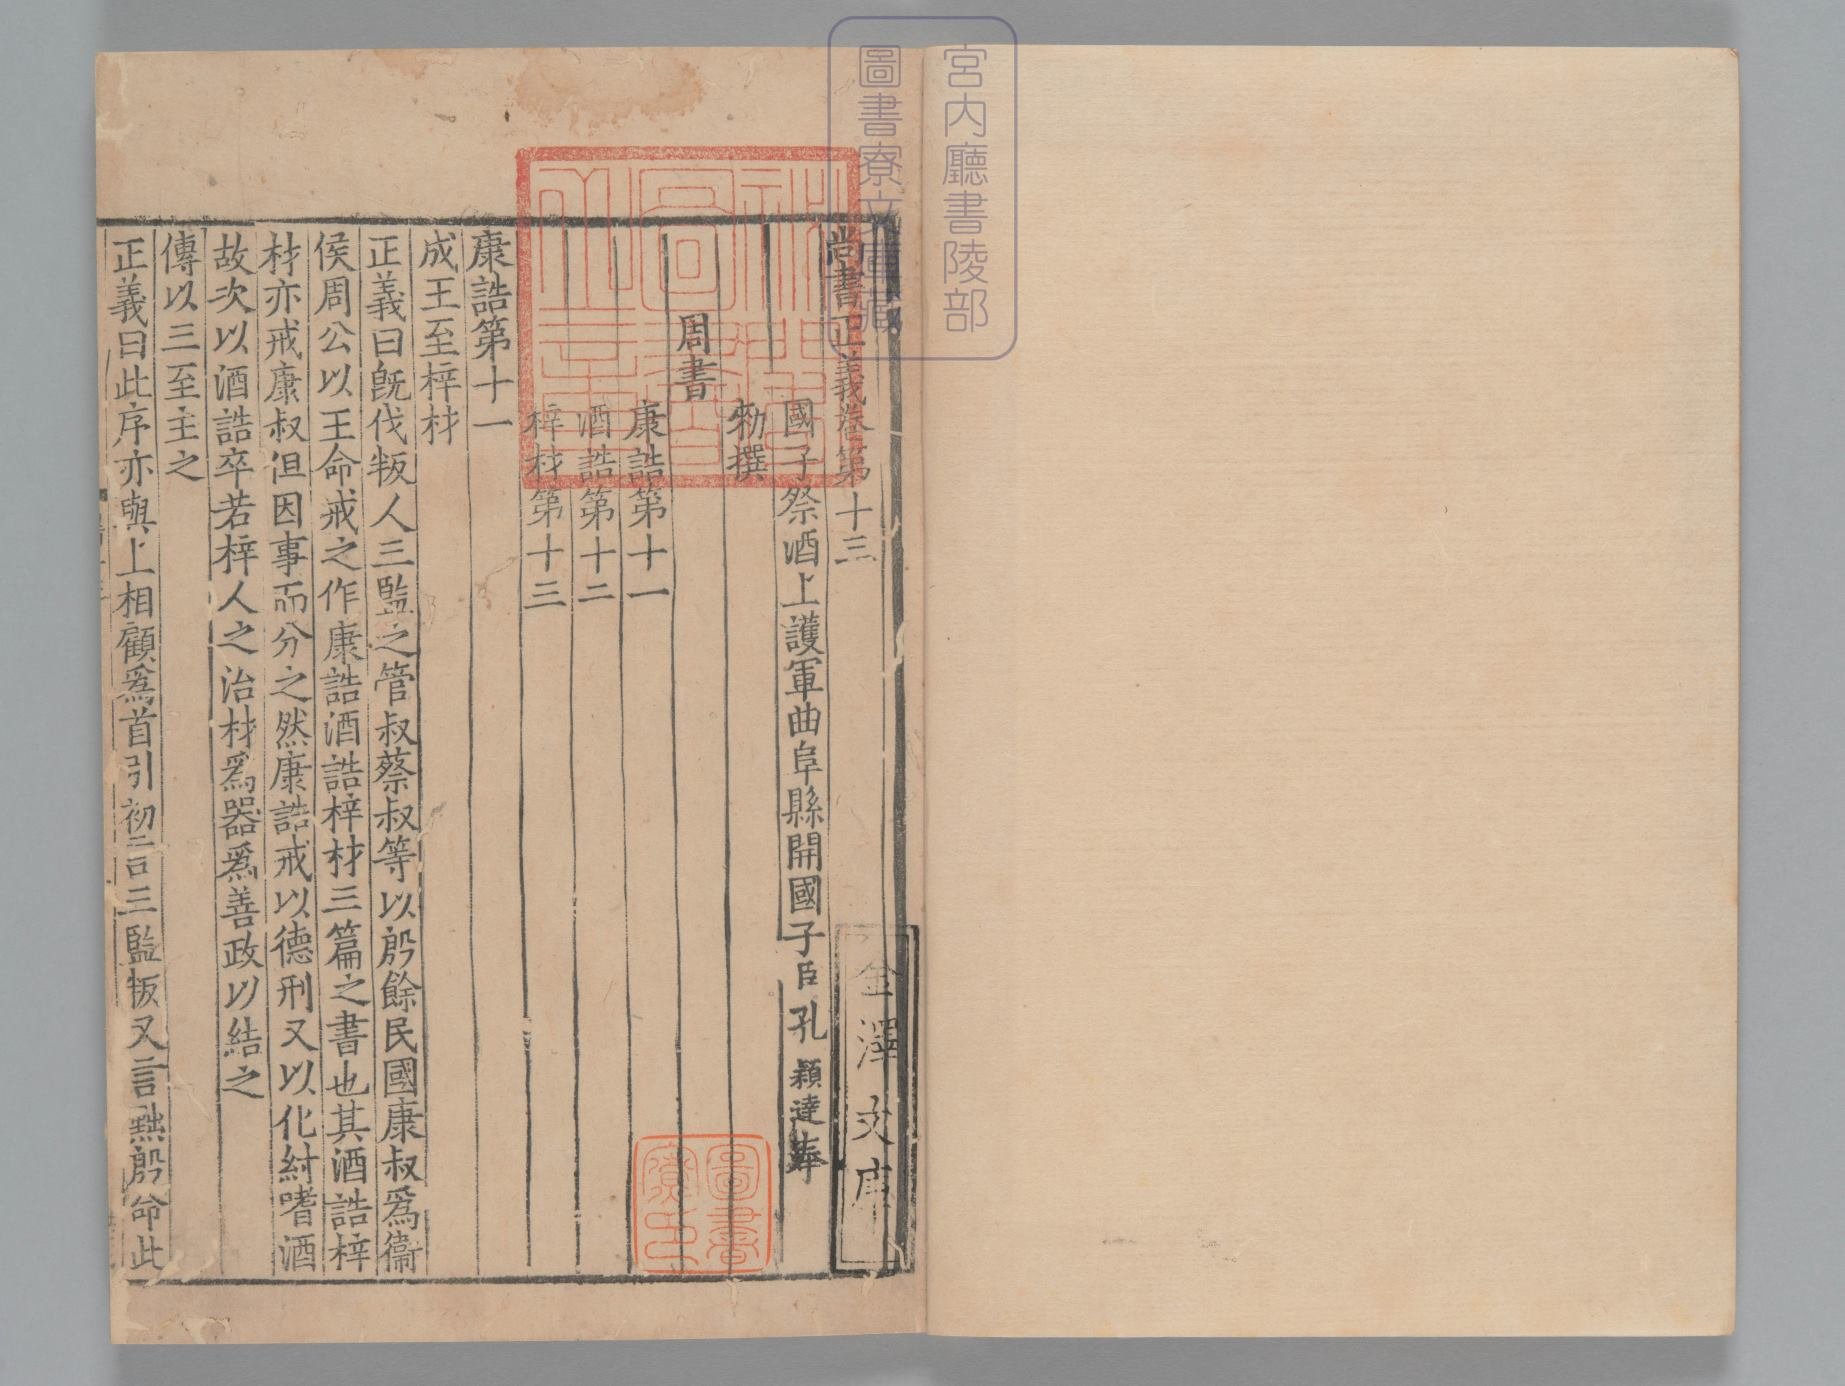 宮内廳書陵部
圖書寮文庫藏
尚書正義卷第十三
國子祭酒上護軍曲阜縣開國子臣孔穎達奉
勑撰
周書
康誥第十一
酒誥第十二
梓材第十三
康誥第十一
成王至梓材
正義曰旣伐叛人三監之管叔蔡叔等以殷餘民國康叔爲衞
侯周公以王命戒之作康誥酒誥梓材三篇之書也其酒誥梓
材亦戒康叔但因事而分之然康誥戒以德刑又以化紂嗜酒
故次以酒誥卒若梓人之治材爲器爲善政以結之
傳以三至主之
正義曰此序亦與上相顧爲首引初言三監叛又言黜殷命此
金澤文庫
圖書
寮印